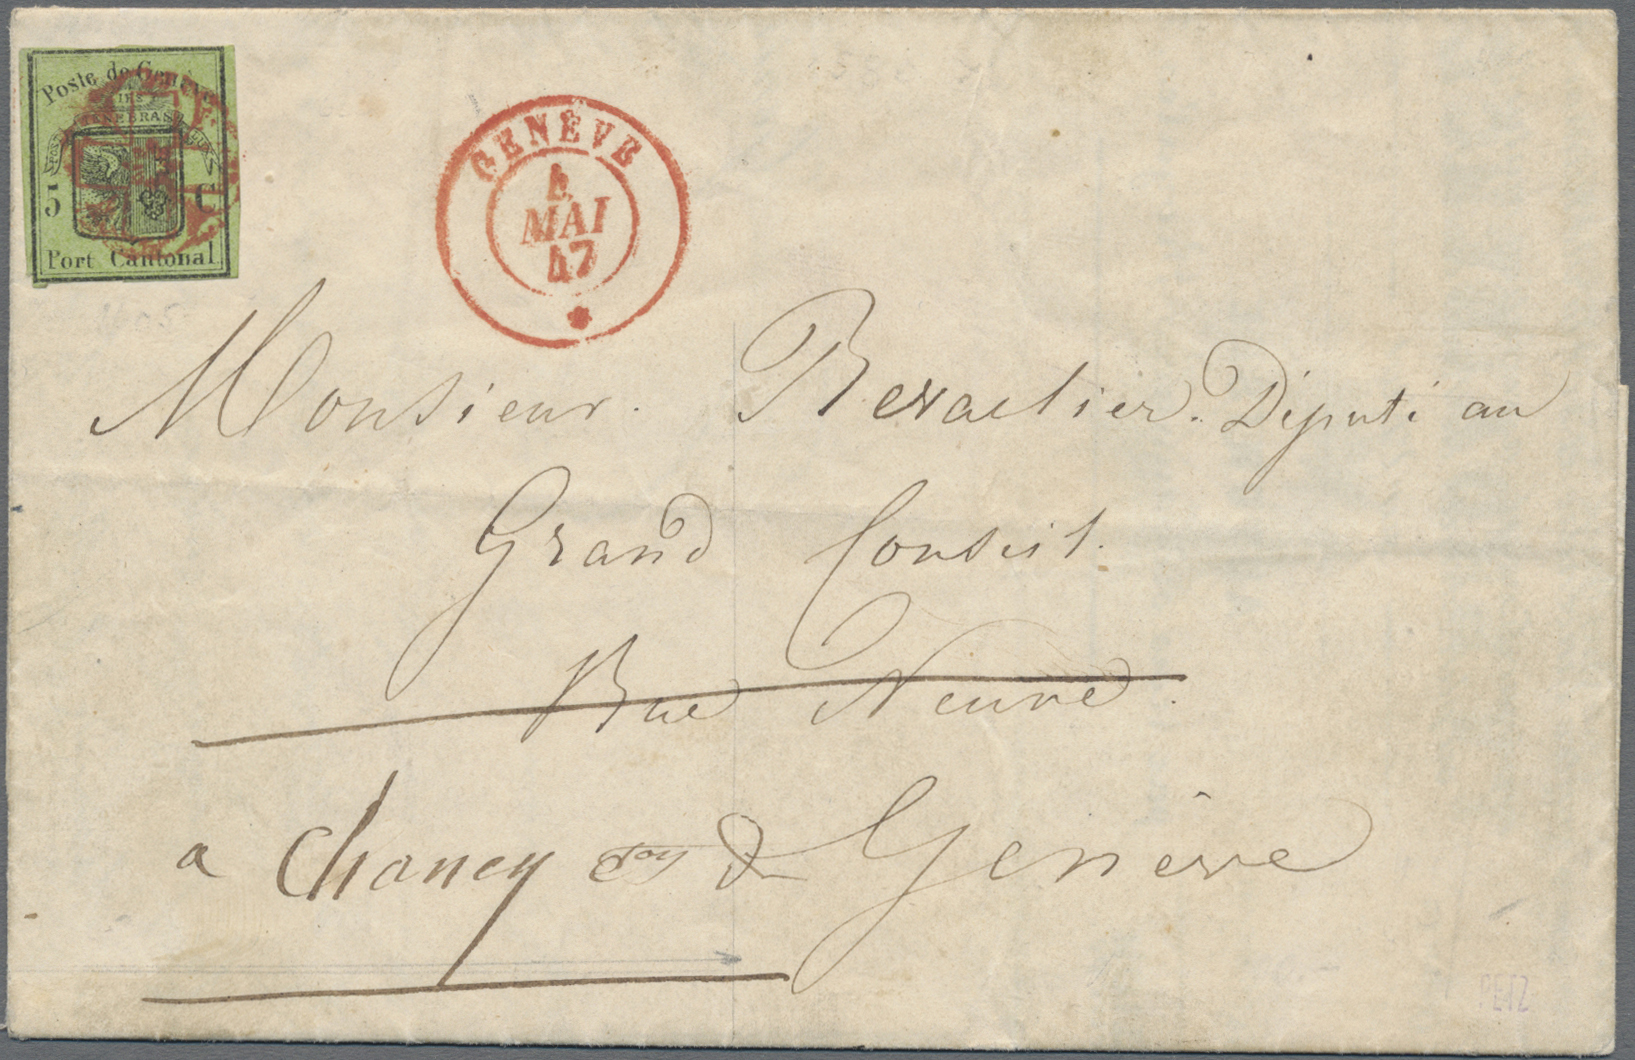 Poste de Genève
POST TENEBRAS LUX
5 C
Port Cantonal
GENÈVE
4
MAI
47
Monsieur. Député au
Grand Conseil.
Rue Neuve.
a Chancy de Genève
PETZ